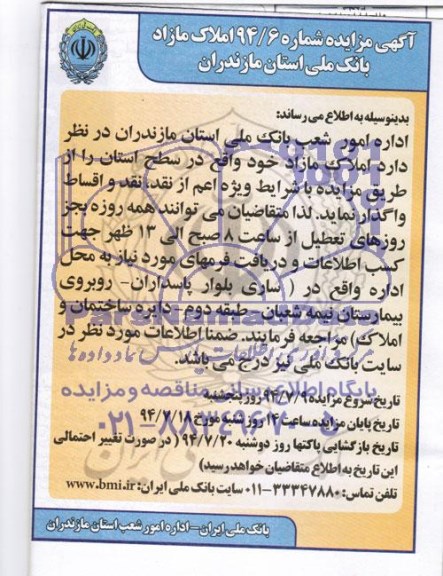 آگهی مزایده شماره ۹۴/۶ املاک مازاد
بانک ملی استان مازندران
بدینوسیله به اطلاع می رساند:
اداره امور شعب بانک ملی استان مازندران در نظر
دارد املاک مازاد خود واقع در سطح استان را از
طریق مزایده با شرایط ویژه اعم از نقد، نقد و اقساط
واگذار نماید. لذا متقاضیان می توانند همه روزه بجز
روزهای تعطیل از ساعت ۸ صبح الی ۱۳ ظهر جهت
کسب اطلاعات و دریافت فرمهای مورد نیاز به محل
اداره واقع در ( ساری بلوار پاسداران- روبروی
بیمارستان نیمه شعبان - طبقه دوم - دایره ساختمان و
املاک) مراجعه فرمایند. ضمنا اطلاعات مورد نظر در
سایت بانک ملی نیز درج می باشد.
پایگاه اطلاع رسانی مناقصه و مزایده
تاریخ شروع مزایده ۹۴/۷/۹ روز پنجشنبه
تاریخ پایان مزایده ساعت ۱۴ روز شنبه مورخ ۹۴/۷/۱۸
۰۲۱-۸۸۳۴۹۶۷۰
تاریخ بازگشایی پاکتها روز دوشنبه ۹۴/۷/۲۰ ( در صورت تغییر احتمالی
این تاریخ به اطلاع متقاضیان خواهد رسید)
تلفن تماس: ۳۳۳۴۷۸۸۰-۰۱۱ سایت بانک ملی ایران: www.bmi.ir
بانک ملی ایران - اداره امور شعب استان مازندران